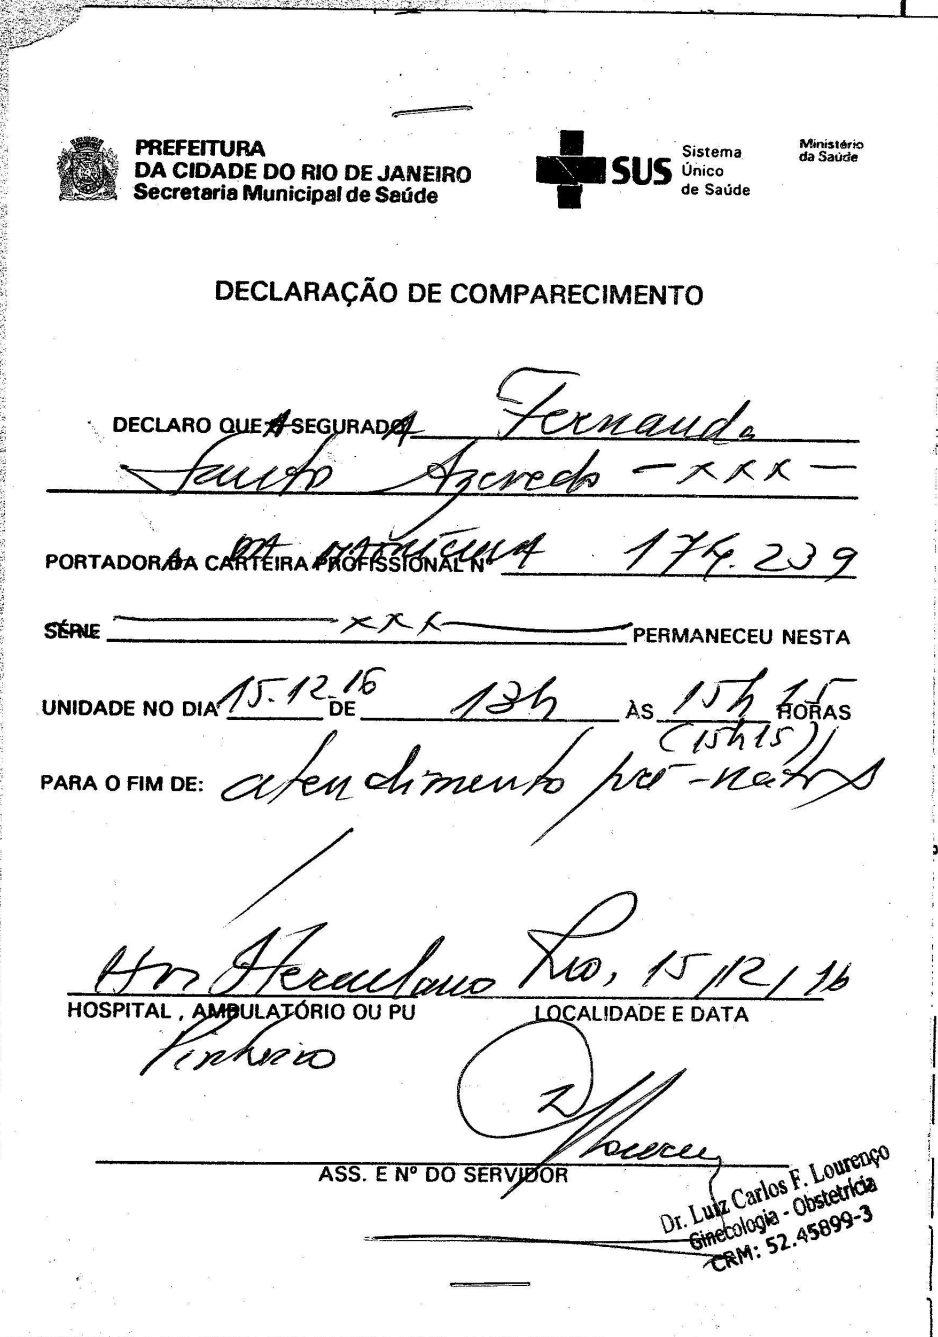 PREFEITURA
DA CIDADE DO RIO DE JANEIRO
Secretaria Municipal de Saúde
SUS
Sistema
Único
de Saúde
Ministério
da Saúde
DECLARAÇÃO DE COMPARECIMENTO
DECLARO QUE A SEGURADA Fernanda
Santo Azevedo - x x x -
PORTADOR DA CARTEIRA PROFISSIONAL Nº 174.239
DA MATRÍCULA
SÉRIE xxx PERMANECEU NESTA
UNIDADE NO DIA 15.12.16 DE 13h ÀS 15h 15 HORAS
(15h15)
PARA O FIM DE: atendimento pré-natal
Herculano Rio, 15/12/16
HOSPITAL, AMBULATÓRIO OU PU LOCALIDADE E DATA
Pinheiro
ASS. E Nº DO SERVIDOR
Dr. Luiz Carlos F. Lourenço
Ginecologia - Obstetrícia
CRM: 52.45899-3